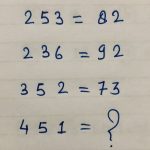 253 = 82
236 = 92
352 = 73
451 = ?